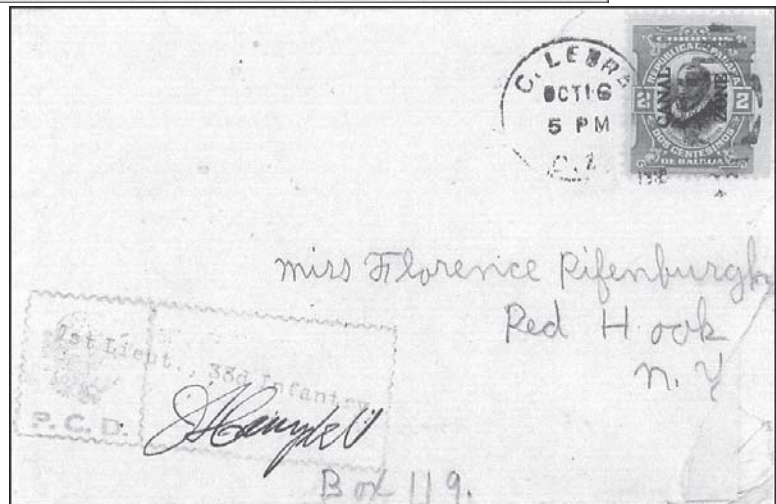 CULEBRA
OCT 16
5 PM
C.Z.
CORREOS
REPUBLICA DE PANAMA
2 2
CANAL ZONE
DOS CENTESIMOS
DE BALBOA
Miss Florence Rifenburgh
Red Hook
N. Y
1st Lieut., 33d Infantry
P. C. D.
Box 119.